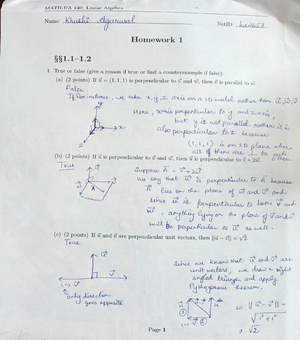 MATH-UA 140: Linear Algebra
Name: Khushi Agarwal NetID:
Homework 1
§§1.1–1.2
1. True or false (give a reason if true or find a counterexample if false).
(a) (2 points) If u⃗ = (1, 1, 1) is perpendicular to v⃗ and w⃗, then v⃗ is parallel to w⃗.
False
If we take x, y, z axis on a 3D model rather than
Here, x axis is perpendicular to y and z axis,
but y is not parallel rather it is
also perpendicular to z because
(1, 1, 1) is on 3D plane where
all of them are to each other
(b) (2 points) If u⃗ is perpendicular to v⃗ and w⃗, then u⃗ is perpendicular to v⃗ + 2w⃗.
True
Suppose A = v⃗ + 2w⃗
We say that u⃗ is perpendicular to A because
A lies on the plane of v⃗ and w⃗ and
since u⃗ is perpendicular to both v⃗ and
w⃗, anything lying on the plane of v⃗ and w⃗
will be perpendicular to u⃗ as well.
(c) (2 points) If u⃗ and v⃗ are perpendicular unit vectors, then ||u⃗ − v⃗|| = √2.
True
Since we know that u⃗ and v⃗ are
unit vectors, we draw a right
angled triangle and apply
Pythagoras theorem.
only direction
goes opposite
so ||u⃗ − v⃗|| =
√1² + 1²
√2
Page 1